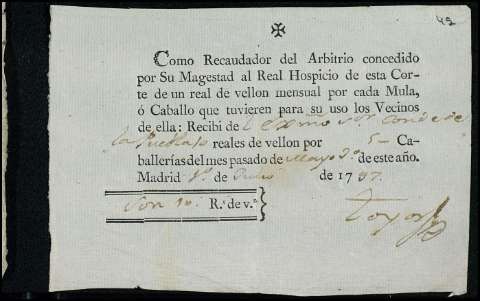 49
✠
Como Recaudador del Arbitrio concedido
por Su Magestad al Real Hospicio de esta Cor-
te de un real de vellon mensual por cada Mula,
ó Caballo que tuvieren para su uso los Vecinos
de ella: Recibí de l exmo sor Conde de
la Puebla reales de vellon por 5 Ca-
ballerías del mes pasado de Mayo de este año.
Madrid 1º de de 1797.
Son R.s de v.n